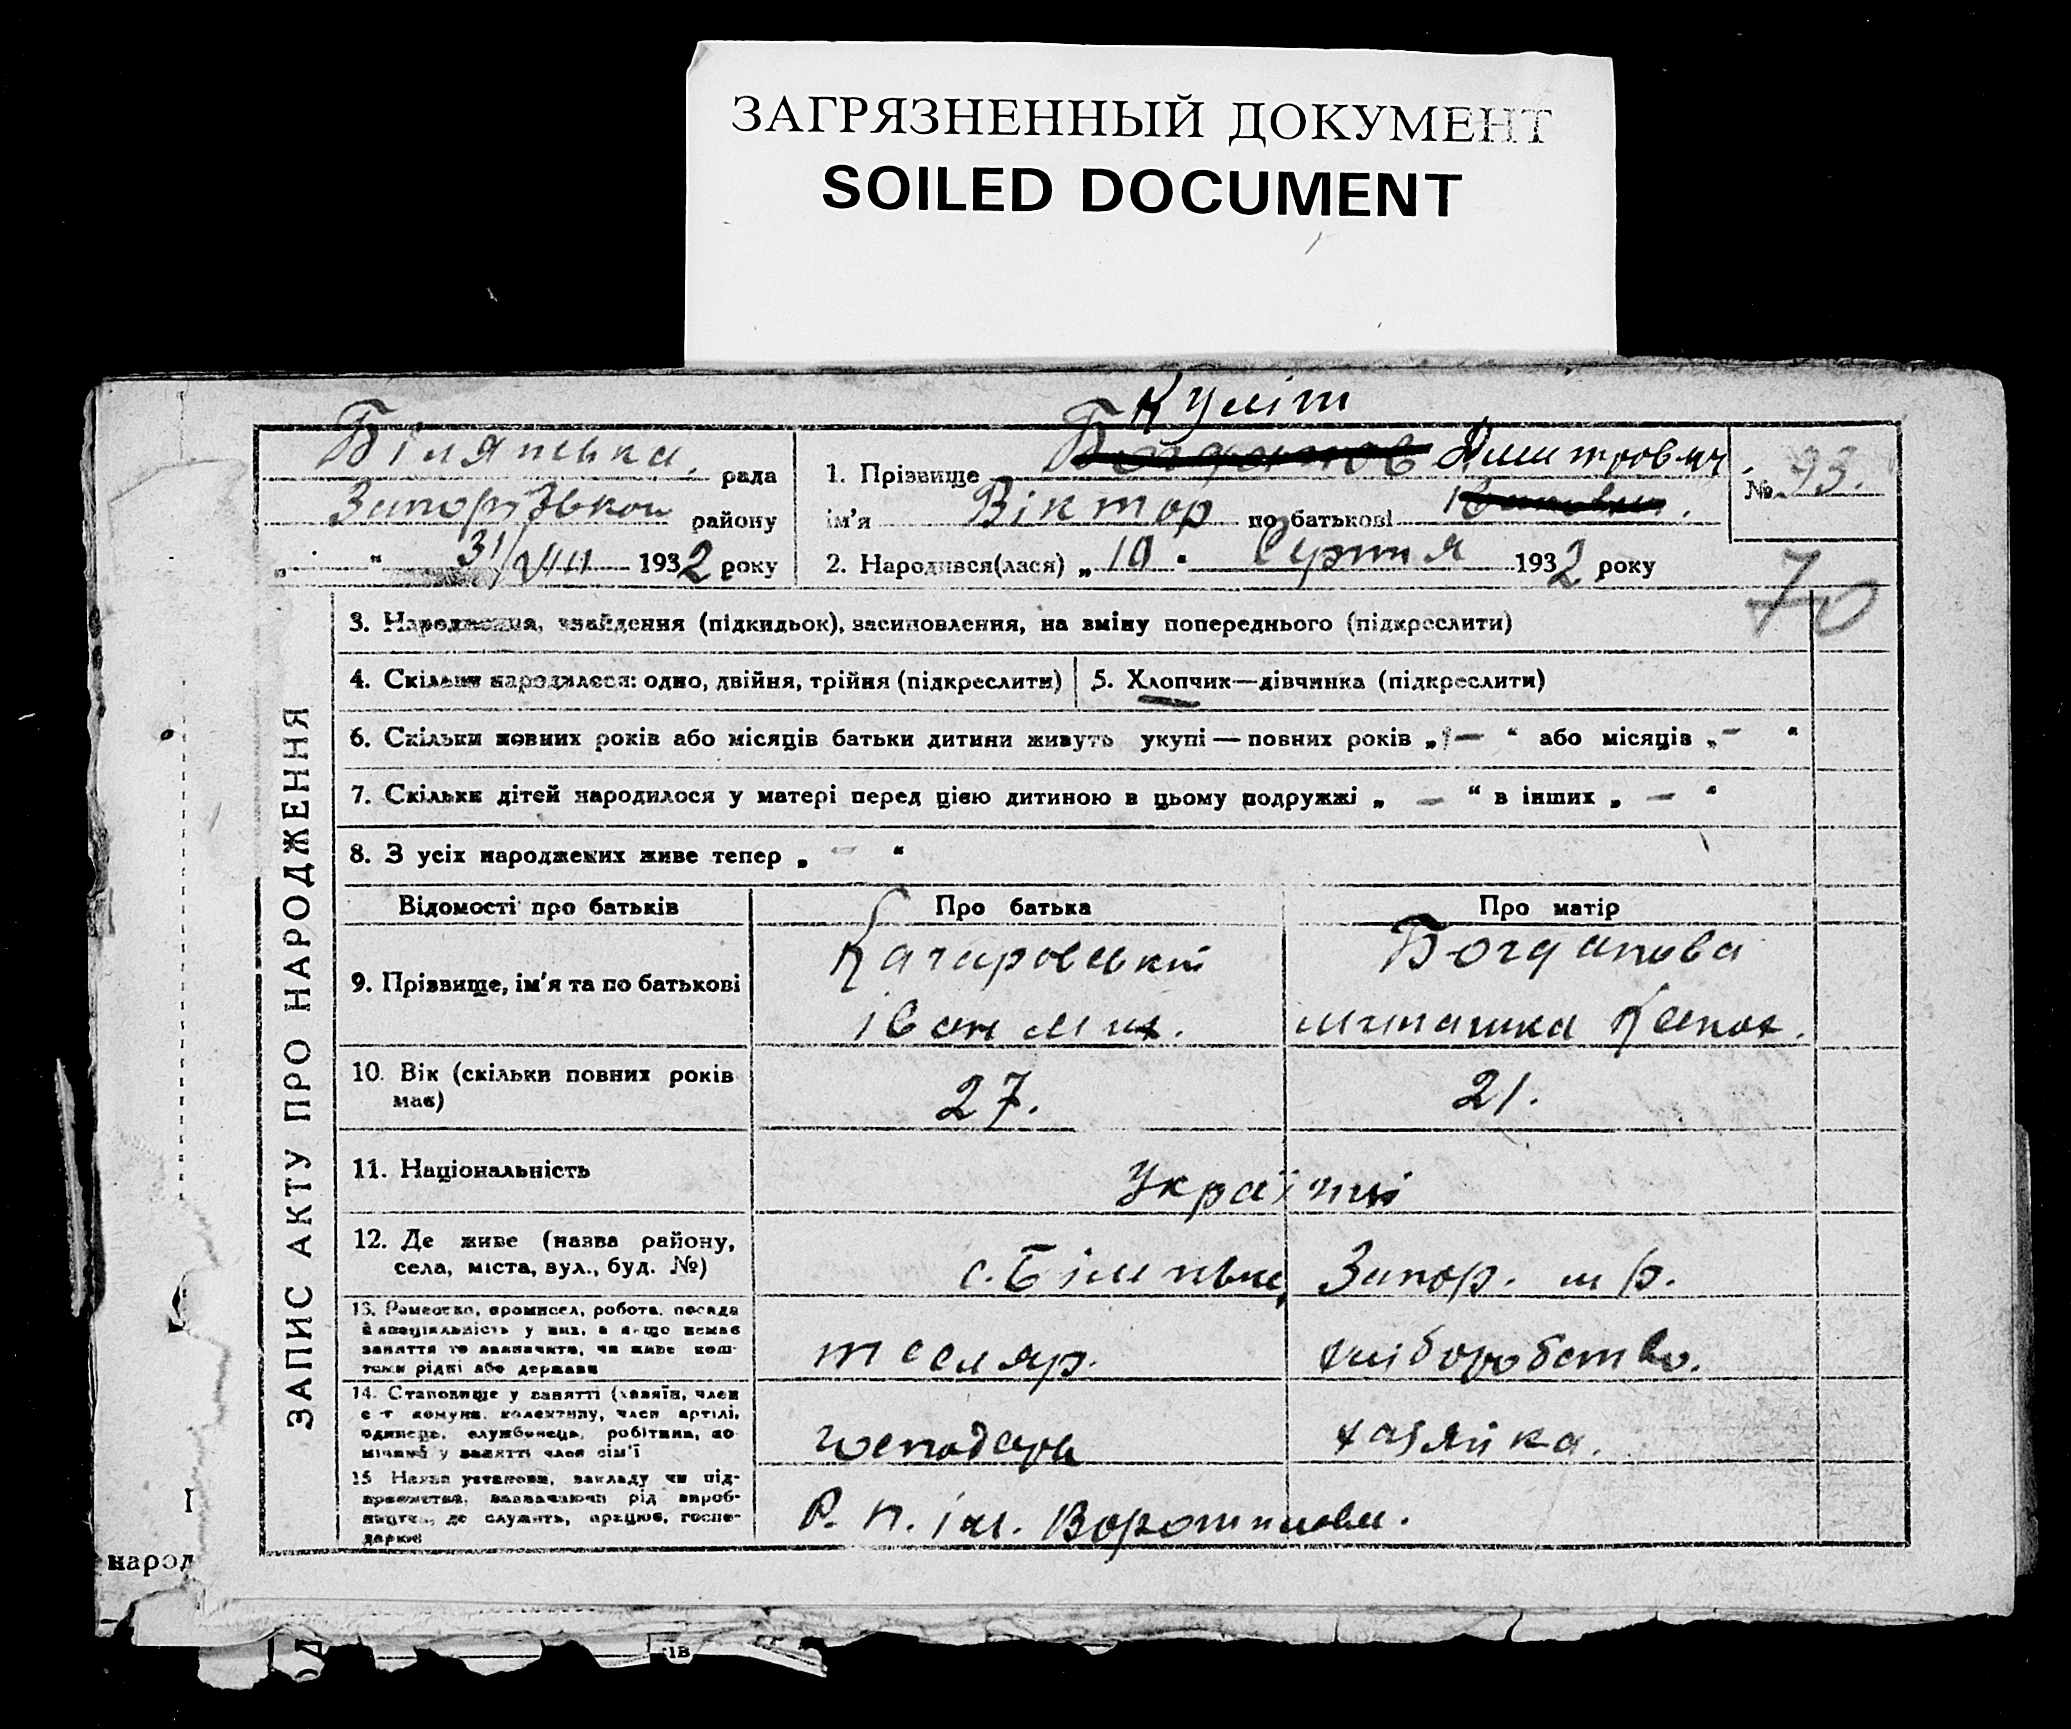 ЗАГРЯЗНЕННЫЙ ДОКУМЕНТ
SOILED DOCUMENT
Куліш
Білянська рада
Запорізької району
31/VIII 1932 року
1. Прізвище Богданов Дмитрович
ім'я Віктор по батькові
№ 93.
2. Народився(лася) „10“ Серпня 1932 року
70
ЗАПИС АКТУ ПРО НАРОДЖЕННЯ
3. Народження, знайдення (підкидьок), засиновлення, на зміну попереднього (підкреслити)
4. Скільки народилося: одно, двійня, трійня (підкреслити)
5. Хлопчик—дівчинка (підкреслити)
6. Скільки повних років або місяців батьки дитини живуть укупі — повних років „ — “ або місяців „ — “
7. Скільки дітей народилося у матері перед цією дитиною в цьому подружжі „ — “ в інших „ — “
8. З усіх народжених живе тепер „ — “
Відомості про батьків
Про батька
Про матір
9. Прізвище, ім'я та по батькові
Качаровський
Іван
Богданова
10. Вік (скільки повних років має)
27.
21.
11. Національність
Українці
12. Де живе (назва району,
села, міста, вул., буд. №)
с. Запор. р.
13. Ремество, промисел, робота, посада
й спеціяльність у них, а якщо немає
заняття то зазначити, чи живе кош-
тами рідні або держави
тесляр.
хліборобство.
14. Становище у занятті (хазяїн, член
с-г комуни, колективу, член артілі,
одинець, службовець, робітник, по-
мічний у занятті член сім'ї
господарь
хазяйка.
15 Назва установи, закладу чи під-
приємства, зазначаючи рід вироб-
ництва, де служить, працює, госпо-
дарює
Р. П. ім. Ворошилова.
народ
ів